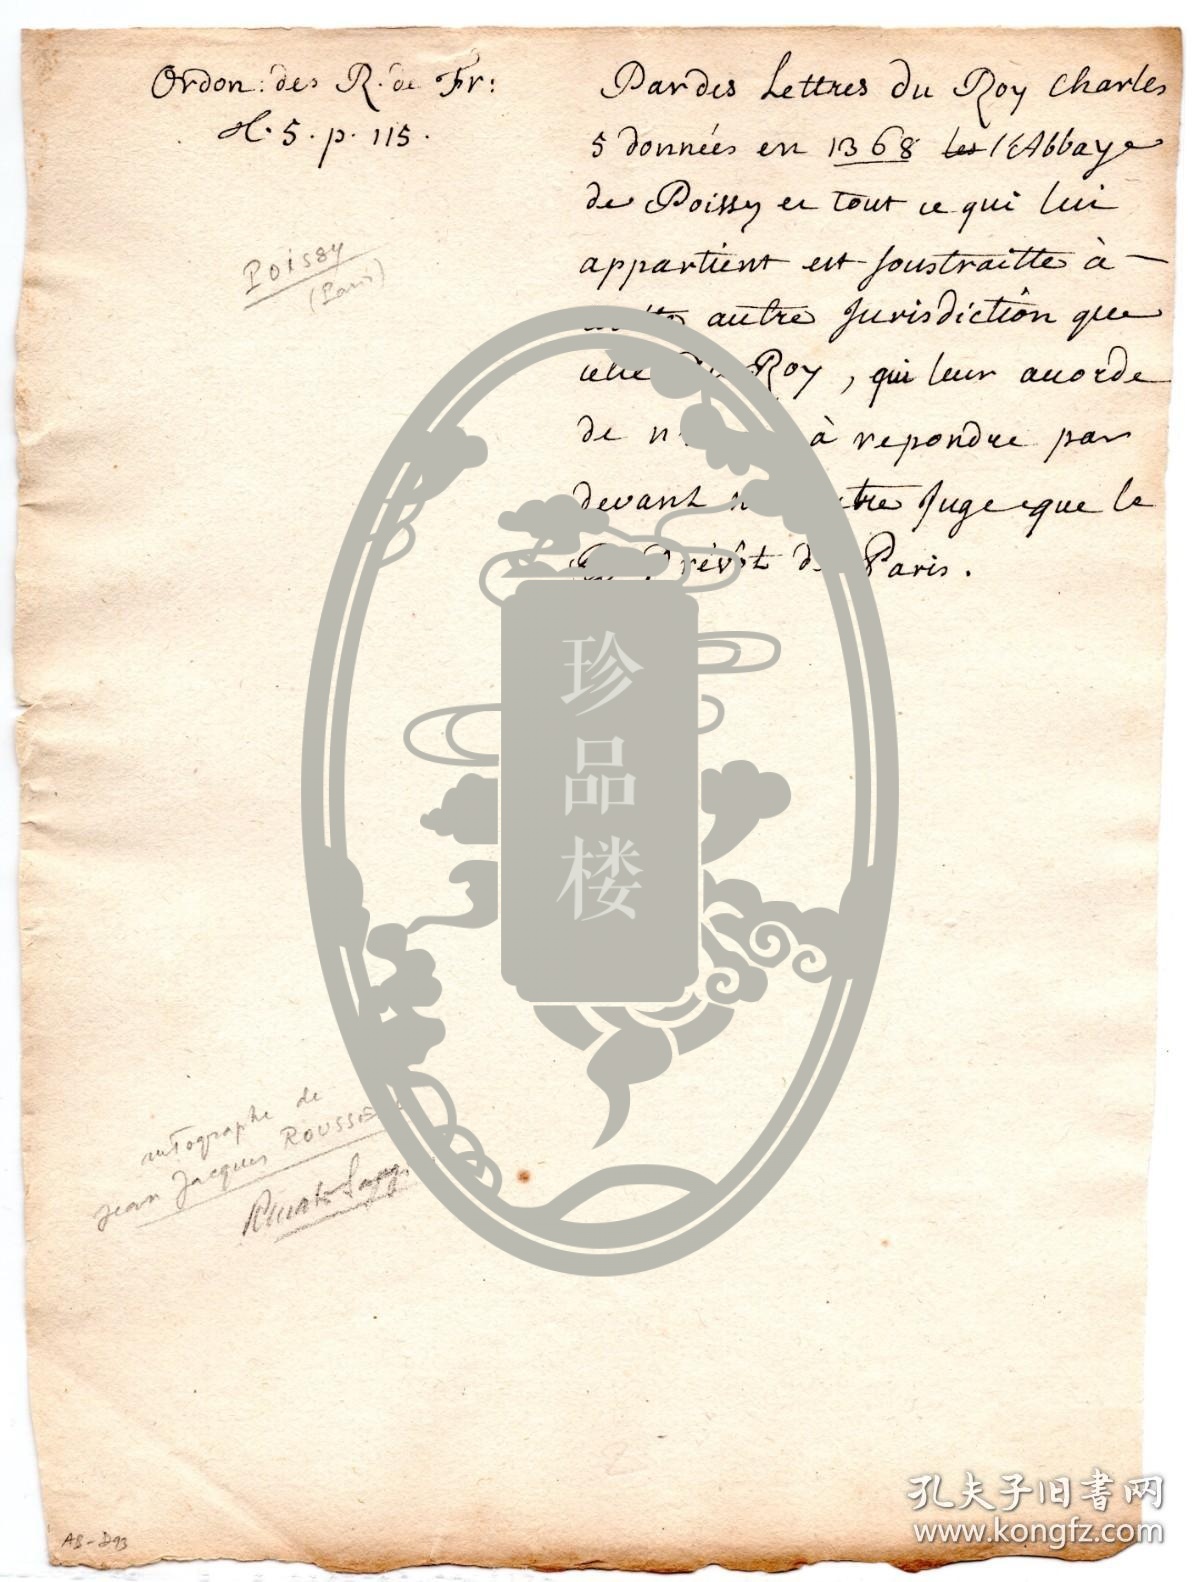 Ordon: des R. de Fr:
5. p. 115.
Par des Lettres du Roy Charles
5 données en 1368 les l'Abbaye
de Poissy et tout ce qui lui
appartient est soustraitte à
autre Jurisdiction que
celle du Roy, qui leur acorde
de à repondre par
devant autre Juge que le
Prévôt de Paris.
Poissy
(Paris)
autographe de
Jean Jacques ROUSSE
AB-D93
珍品楼
孔夫子旧书网
www.kongfz.com